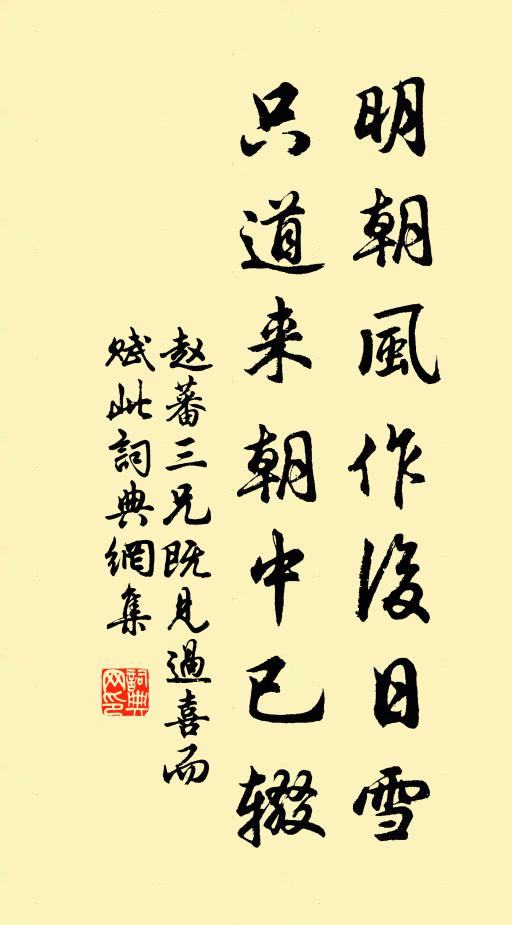 明朝風作後日雪
只道来朝中已辍
赵蕃三兄既见過喜而
赋此詞典網集
詞典
网印